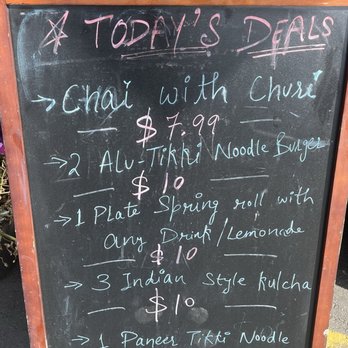 ☆ TODAY'S DEALS
→ Chai with Churi
— $7.99 —
→ 2 Alu-Tikki Noodle Burger
— $10 —
→ 1 Plate Spring roll with
any Drink/Lemonade
— $10 —
→ 3 Indian Style kulcha
— $10 —
→ 1 Paneer Tikki Noodle